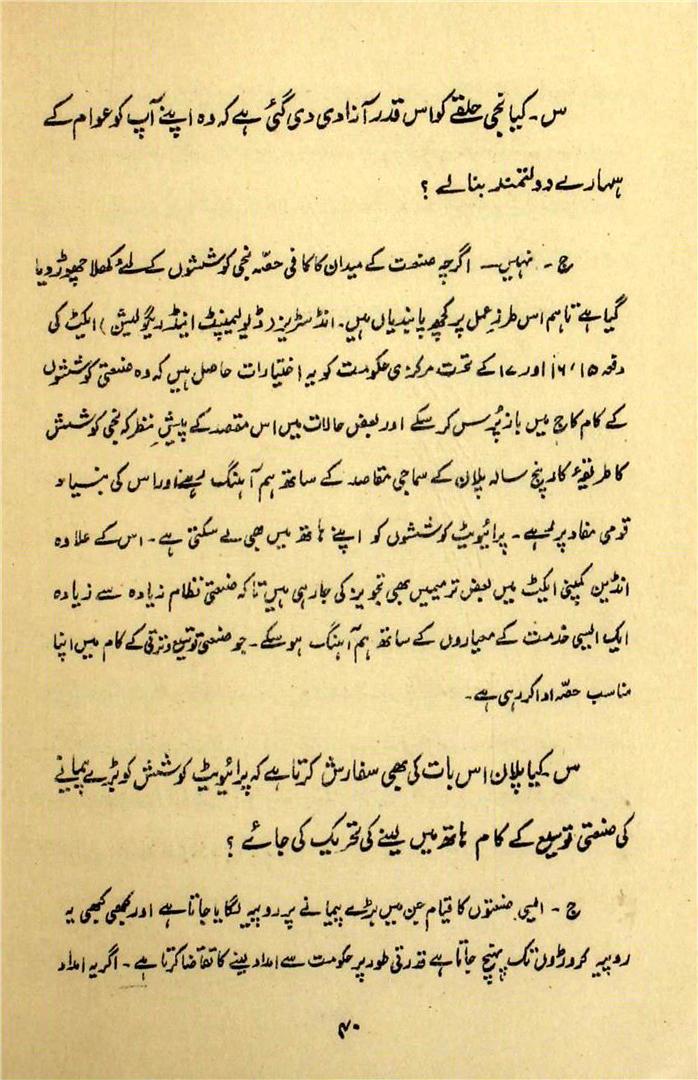 س۔ کیا نجی حلقے کو اس قدر آزادی دی گئی ہے کہ وہ اپنے آپ کو عوام کے
سہارے دولتمند بنالے ؟
ج ۔ نہیں — اگرچہ صنعت کے میدان کا کافی حصّہ نجی کوششوں کے لئے کھلا چھوڑ دیا
گیا ہے تاہم اس طرزِ عمل پر کچھ پابندیاں ہیں۔ انڈسٹریز (ڈیولپمینٹ اینڈ ریگولیشن) ایکٹ کی
دفعہ ۱۵، ۱۶ اور ۱۷ کے تحت مرکزی حکومت کو یہ اختیارات حاصل ہیں کہ وہ صنعتی کوششوں
کے کام کاج میں بازپُرس کر سکے اور بعض حالات میں اس مقصد کے پیشِ نظر کہ نجی کوشش
کا طریقۂ کار پنج سالہ پلان کے سماجی مقاصد کے ساتھ ہم آہنگ رہے اور اس کی بنیاد
قومی مفاد پر رہے ۔ پرائیویٹ کوششوں کو اپنے ہاتھ میں بھی لے سکتی ہے ۔ اس کے علاوہ
انڈین کمپنی ایکٹ میں بعض ترمیمیں بھی تجویز کی جا رہی ہیں تاکہ صنعتی نظام زیادہ سے زیادہ
ایک ایسی خدمت کے معیاروں کے ساتھ ہم آہنگ ہو سکے ۔ جو صنعتی توسیع و ترقی کے کام میں اپنا
مناسب حصّہ ادا کر رہی ہے ۔
س۔ کیا پلان اس بات کی بھی سفارش کرتا ہے کہ پرائیویٹ کوشش کو بڑے پیمانے
کی صنعتی توسیع کے کام ہاتھ میں لینے کی تحریک کی جائے ؟
ج ۔ ایسی صنعتوں کا قیام جن میں بڑے پیمانے پر روپیہ لگایا جاتا ہے اور کبھی کبھی یہ
روپیہ کروڑوں تک پہنچ جاتا ہے قدرتی طور پر حکومت سے امداد لینے کا تقاضا کرتا ہے ۔ اگر یہ امداد
۴۰